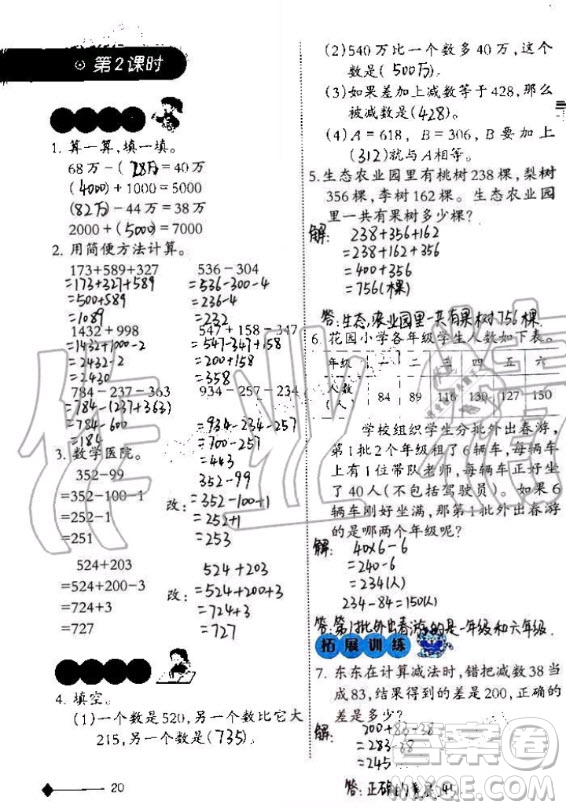 第2课时
1. 算一算,填一填。
68万-(28万)=40万
(4000)+1000=5000
(82万)-44万=38万
2000+(5000)=7000
2. 用简便方法计算。
173+589+327
=173+327+589
=500+589
=1089
536-304
=536-300-4
=236-4
=232
1432+998
=1432+1000-2
=2432-2
=2430
547+158-347
=547-347+158
=200+158
=358
784-237-363
=784-(237+363)
=784-600
=184
934-257-234
=934-234-257
=700-257
=443
3. 数学医院。
352-99
=352-100-1
=252-1
=251
改:
352-99
=352-100+1
=252+1
=253
524+203
=524+200-3
=724+3
=727
改:
524+203
=524+200+3
=724+3
=727
4. 填空。
(1)一个数是520,另一个数比它大
215,另一个数是(735)。
20
(2)540万比一个数多40万,这个
数是(500万)。
(3)如果差加上减数等于428,那么
被减数是(428)。
(4)A=618,B=306,B要加上
(312)就与A相等。
5. 生态农业园里有桃树238棵,梨树
356棵,李树162棵。生态农业园
里一共有果树多少棵?
解:
238+356+162
=238+162+356
=400+356
=756(棵)
答:生态农业园里一共有果树756棵.
6. 花园小学各年级学生人数如下表。
年级 一 二 三 四 五 六
人数(人) 84 89 116 130 127 150
学校组织学生分批外出春游,
第1批2个年级租了6辆车,每辆车
上有1位带队老师,每辆车正好坐
了40人(不包括驾驶员)。如果6
辆车刚好坐满,那第1批外出春游
的是哪两个年级呢?
解:
40×6-6
=240-6
=234(人)
234-84=150(人)
答:第1批外出春游的是一年级和六年级.
拓展训练
7. 东东在计算减法时,错把减数38当
成83,结果得到的差是200,正确的
差是多少?
解:
200+83-38
=283-38
=245
答:正确的差是245
作业精灵
答案圈